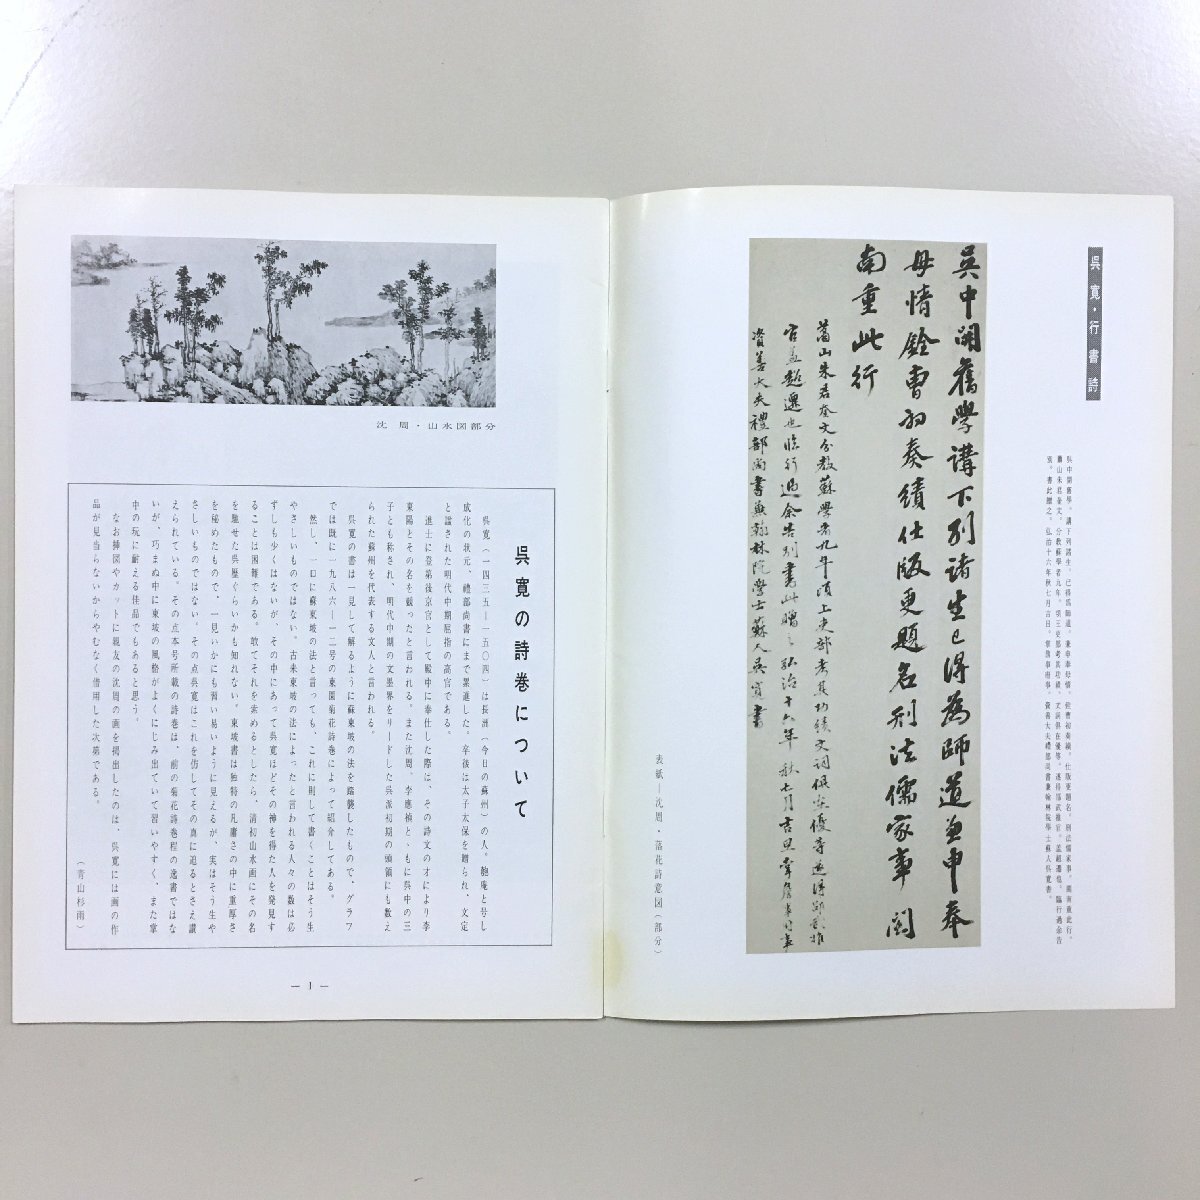 呉寛・行書詩
呉中開舊學。講下列諸生。已得爲師道。兼申奉母情。銓曹初奏績。仕版更題名。刑法儒家事。闕南重此行。
表紙―沈周・落花詩意図(部分)
吳中開舊學講下列諸生已得為師道兼申奉
母情銓曹初奏績仕版更題名刑法儒家事闕
南重此行
資善大夫禮部尚書兼翰林院學士蘇人吳寬書
沈 周・山水図部分
呉寛の詩巻について
呉寛(一四三五―一五〇四)は長洲(今日の蘇州)の人。匏庵と号し
成化の状元、禮部尚書にまで累進した。卒後は太子太保を贈られ、文定
と諡された明代中期屈指の高官である。
進士に登第後京官として殿中に奉仕した際は、その詩文の才により李
東陽とその名を競ったと言われる。また沈周、李應禎とゝもに呉中の三
子とも称され、明代中期の文墨界をリードした呉派初期の頭領にも数え
られた蘇州を代表する文人と言われる。
呉寛の書は一見して解るように蘇東坡の法を踏襲したもので、グラフ
では既に一九八六―一二号の東園菊花詩巻によって紹介してある。
然し、一口に蘇東坡の法と言っても、これに則して書くことはそう生
やさしいものではない。古来東坡の法によったと言われる人々の数は必
ずしも少くはないが、その中にあって呉寛ほどその神を得た人を発見す
ることは困難である。敢てそれを索めるとしたら、清初山水画にその名
を馳せた呉歴ぐらいかも知れない。東坡書は独特の凡庸さの中に重厚さ
を秘めたもので、一見いかにも習い易いように見えるが、実はそう生や
さしいものではない。その点呉寛はこれを仿してその真に迫るとさえ讃
えられている。その点本号所載の詩巻は、前の菊花詩巻程の逸書ではな
いが、巧まぬ中に東坡の風格がよくにじみ出ていて習いやすく、また掌
中の玩に耐える佳品でもあると思う。
なお挿図やカットに親友の沈周の画を掲出したのは、呉寛には画の作
品が見当らないからやむなく借用した次第である。
(青山杉雨)
― 1 ―